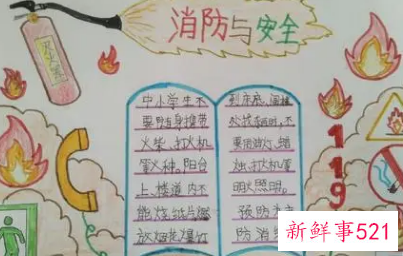 消防与安全
灭火器
中小学生不
要随身携带
火柴、打火机
等火种。阳台
上、楼道内不
能烧纸片、燃
放烟花爆竹
到床底、阁楼
处找东西时,不
要用油灯、蜡
烛、打火机等
明火照明。
预防为主
防消
119
新鲜事521